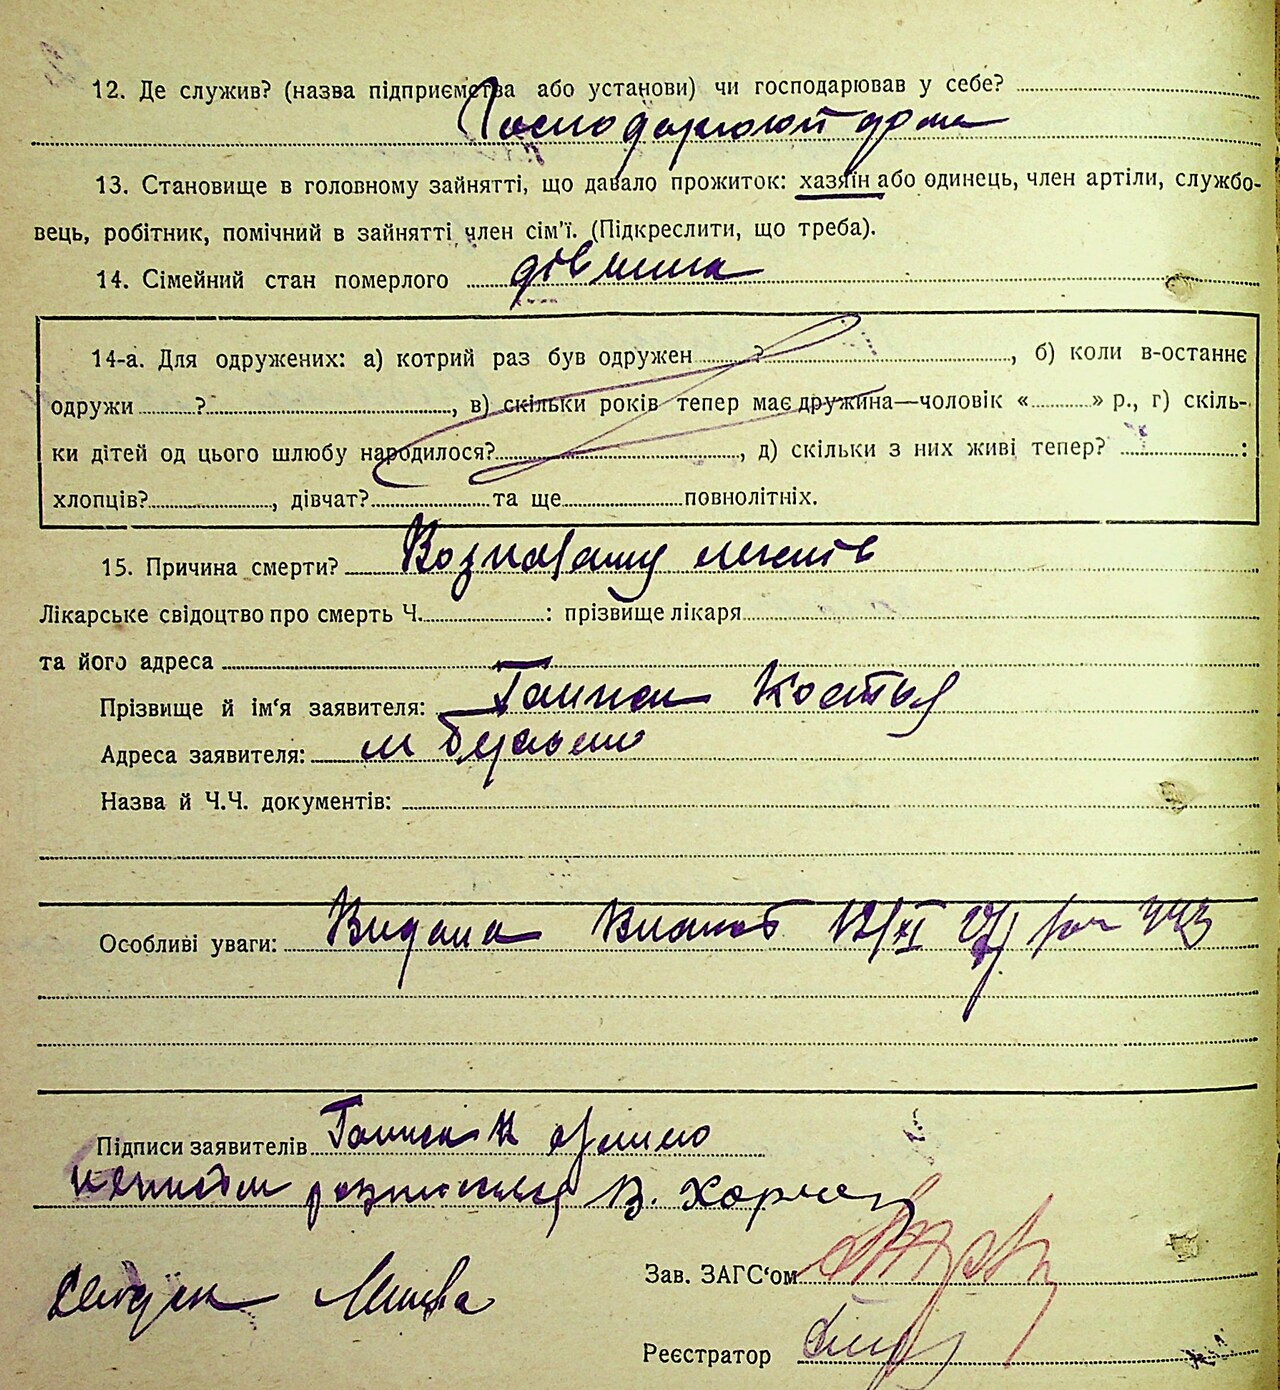 12. Де служив? (назва підприємства або установи) чи господарював у себе?
Господарюют дома
13. Становище в головному зайнятті, що давало прожиток: хазяїн або одинець, член артіли, службо-
вець, робітник, помічний в зайнятті член сім'ї. (Підкреслити, що треба).
14. Сімейний стан померлого дівчина
14-а. Для одружених: а) котрий раз був одружен ?, б) коли в-останнє
одружи ?, в) скільки років тепер має дружина—чоловік « » р., г) скіль-
ки дітей од цього шлюбу народилося?, д) скільки з них живі тепер? :
хлопців?, дівчат? та ще повнолітніх.
15. Причина смерти? легенів
Лікарське свідоцтво про смерть Ч. : прізвище лікаря
та його адреса
Прізвище й ім'я заявителя: Костья
Адреса заявителя: м
Назва й Ч.Ч. документів:
Особливі уваги: Видана 12/XI 27 за 443
Підписи заявителів К
розписался В.
Зав. ЗАГС'ом
Реєстратор